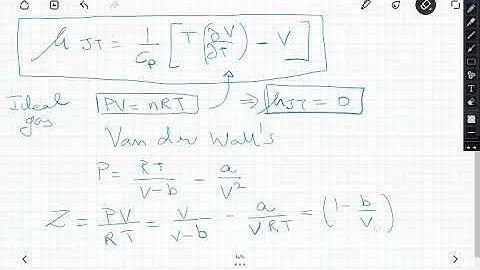 μ JT = 1/Cp [ T (∂V/∂T) - V ]
Ideal gas PV = nRT ⇒ μJT = 0
Van der Wall's
P = RT/V-b - a/V²
Z = PV/RT = V/V-b - a/VRT = (1 - b/V)